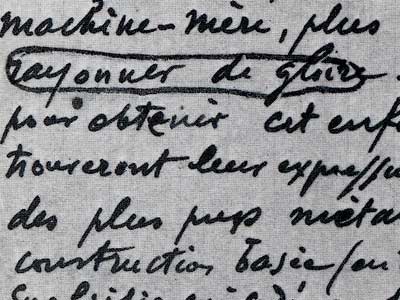 machine-mère, plus
rayonner de gloire
pour obtenir cet enf
trouveront leur express
des plus purs méta
construction basée (en